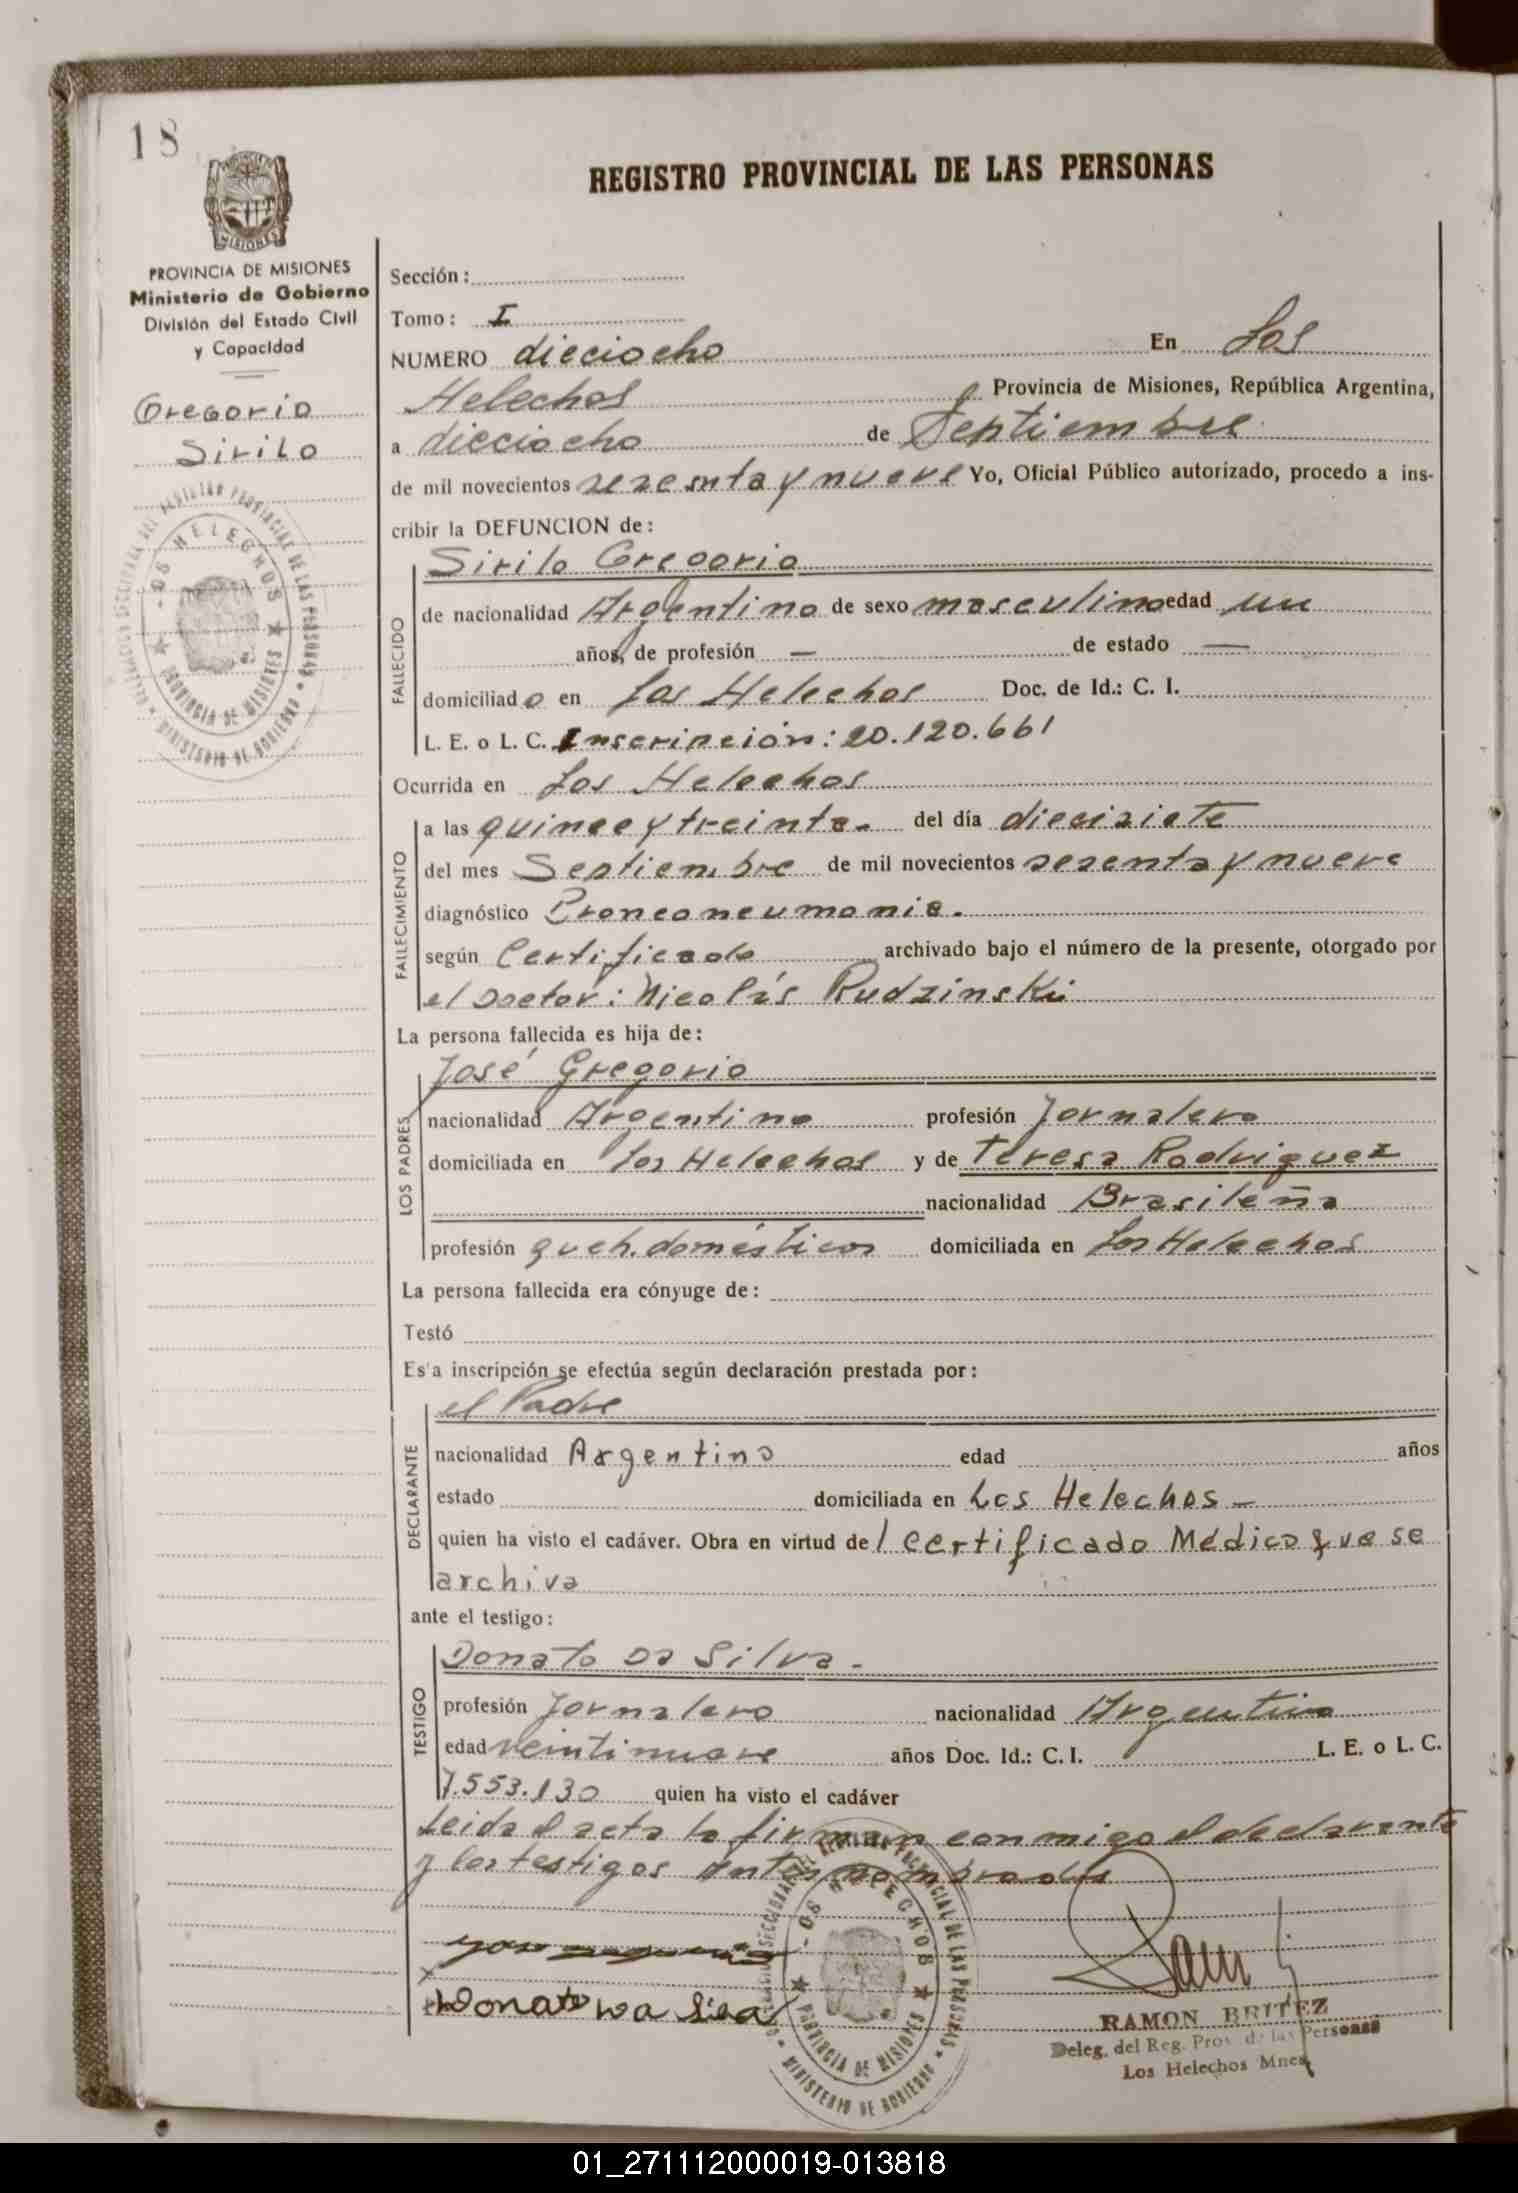 18
REGISTRO PROVINCIAL DE LAS PERSONAS
MISIONES
PROVINCIA DE MISIONES
Ministerio de Gobierno
División del Estado Civil
y Capacidad
Gregorio
Sirilo
Sección:
Tomo: I
NUMERO dieciocho En Los
Helechos Provincia de Misiones, República Argentina,
a dieciocho de Septiembre
de mil novecientos sesenta y nueve Yo, Oficial Público autorizado, procedo a ins-
cribir la DEFUNCION de:
FALLECIDO
Sirilo Gregorio
de nacionalidad Argentino de sexo masculino edad un
años, de profesión — de estado —
domiciliado en Los Helechos Doc. de Id.: C. I.
L. E. o L. C. Inscripción: 20.120.661
Ocurrida en Los Helechos
FALLECIMIENTO
a las quince y treinta. del día diecisiete
del mes Septiembre de mil novecientos sesenta y nueve
diagnóstico Bronconeumonia.
según Certificado archivado bajo el número de la presente, otorgado por
el Doctor: Nicolás Rudzinski
La persona fallecida es hija de:
LOS PADRES
José Gregorio
nacionalidad Argentino profesión Jornalero
domiciliada en Los Helechos y de Teresa Rodriguez
nacionalidad Brasileña
profesión queh. domésticos domiciliada en Los Helechos
La persona fallecida era cónyuge de:
Testó
Es'a inscripción se efectúa según declaración prestada por:
DECLARANTE
el Padre
nacionalidad Argentino edad años
estado domiciliada en Los Helechos -
quien ha visto el cadáver. Obra en virtud del certificado Médico que se
archiva
ante el testigo:
TESTIGO
Donato Da Silva -
profesión Jornalero nacionalidad Argentino
edad veintinueve años Doc. Id.: C. I. L. E. o L. C.
7.553.130 quien ha visto el cadáver
Leida el acta la firman conmigo el declarante
y los testigos antes nombrados
LOS HELECHOS
PROVINCIA DE MISIONES
MINISTERIO DE GOBIERNO
Donato
RAMON BRITEZ
Deleg. del Reg. Prov. de las Personas
Los Helechos Mnes.
01_271112000019-013818